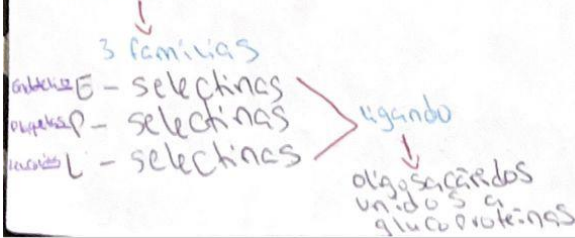 3 familias
endotelios E - selectinas
plaquetas P - selectinas
leucocitos L - selectinas
ligando
oligosacáridos
unidos a
glucoproteínas